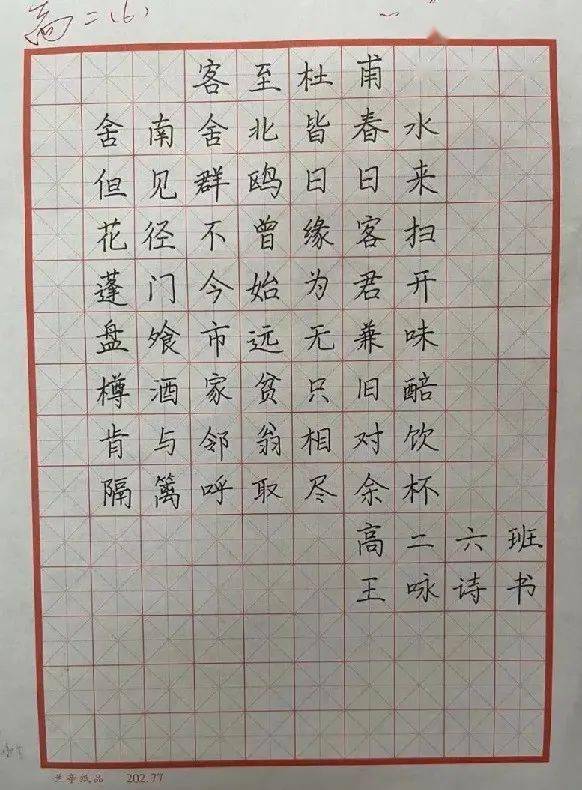 高二(6)
客至杜甫
舍南舍北皆春水
但见群鸥日日来
花径不曾缘客扫
蓬门今始为君开
盘飧市远无兼味
樽酒家贫只旧醅
肯与邻翁相对饮
隔篱呼取尽余杯
高二六班
王咏诗书
兰亭纸品 202.77